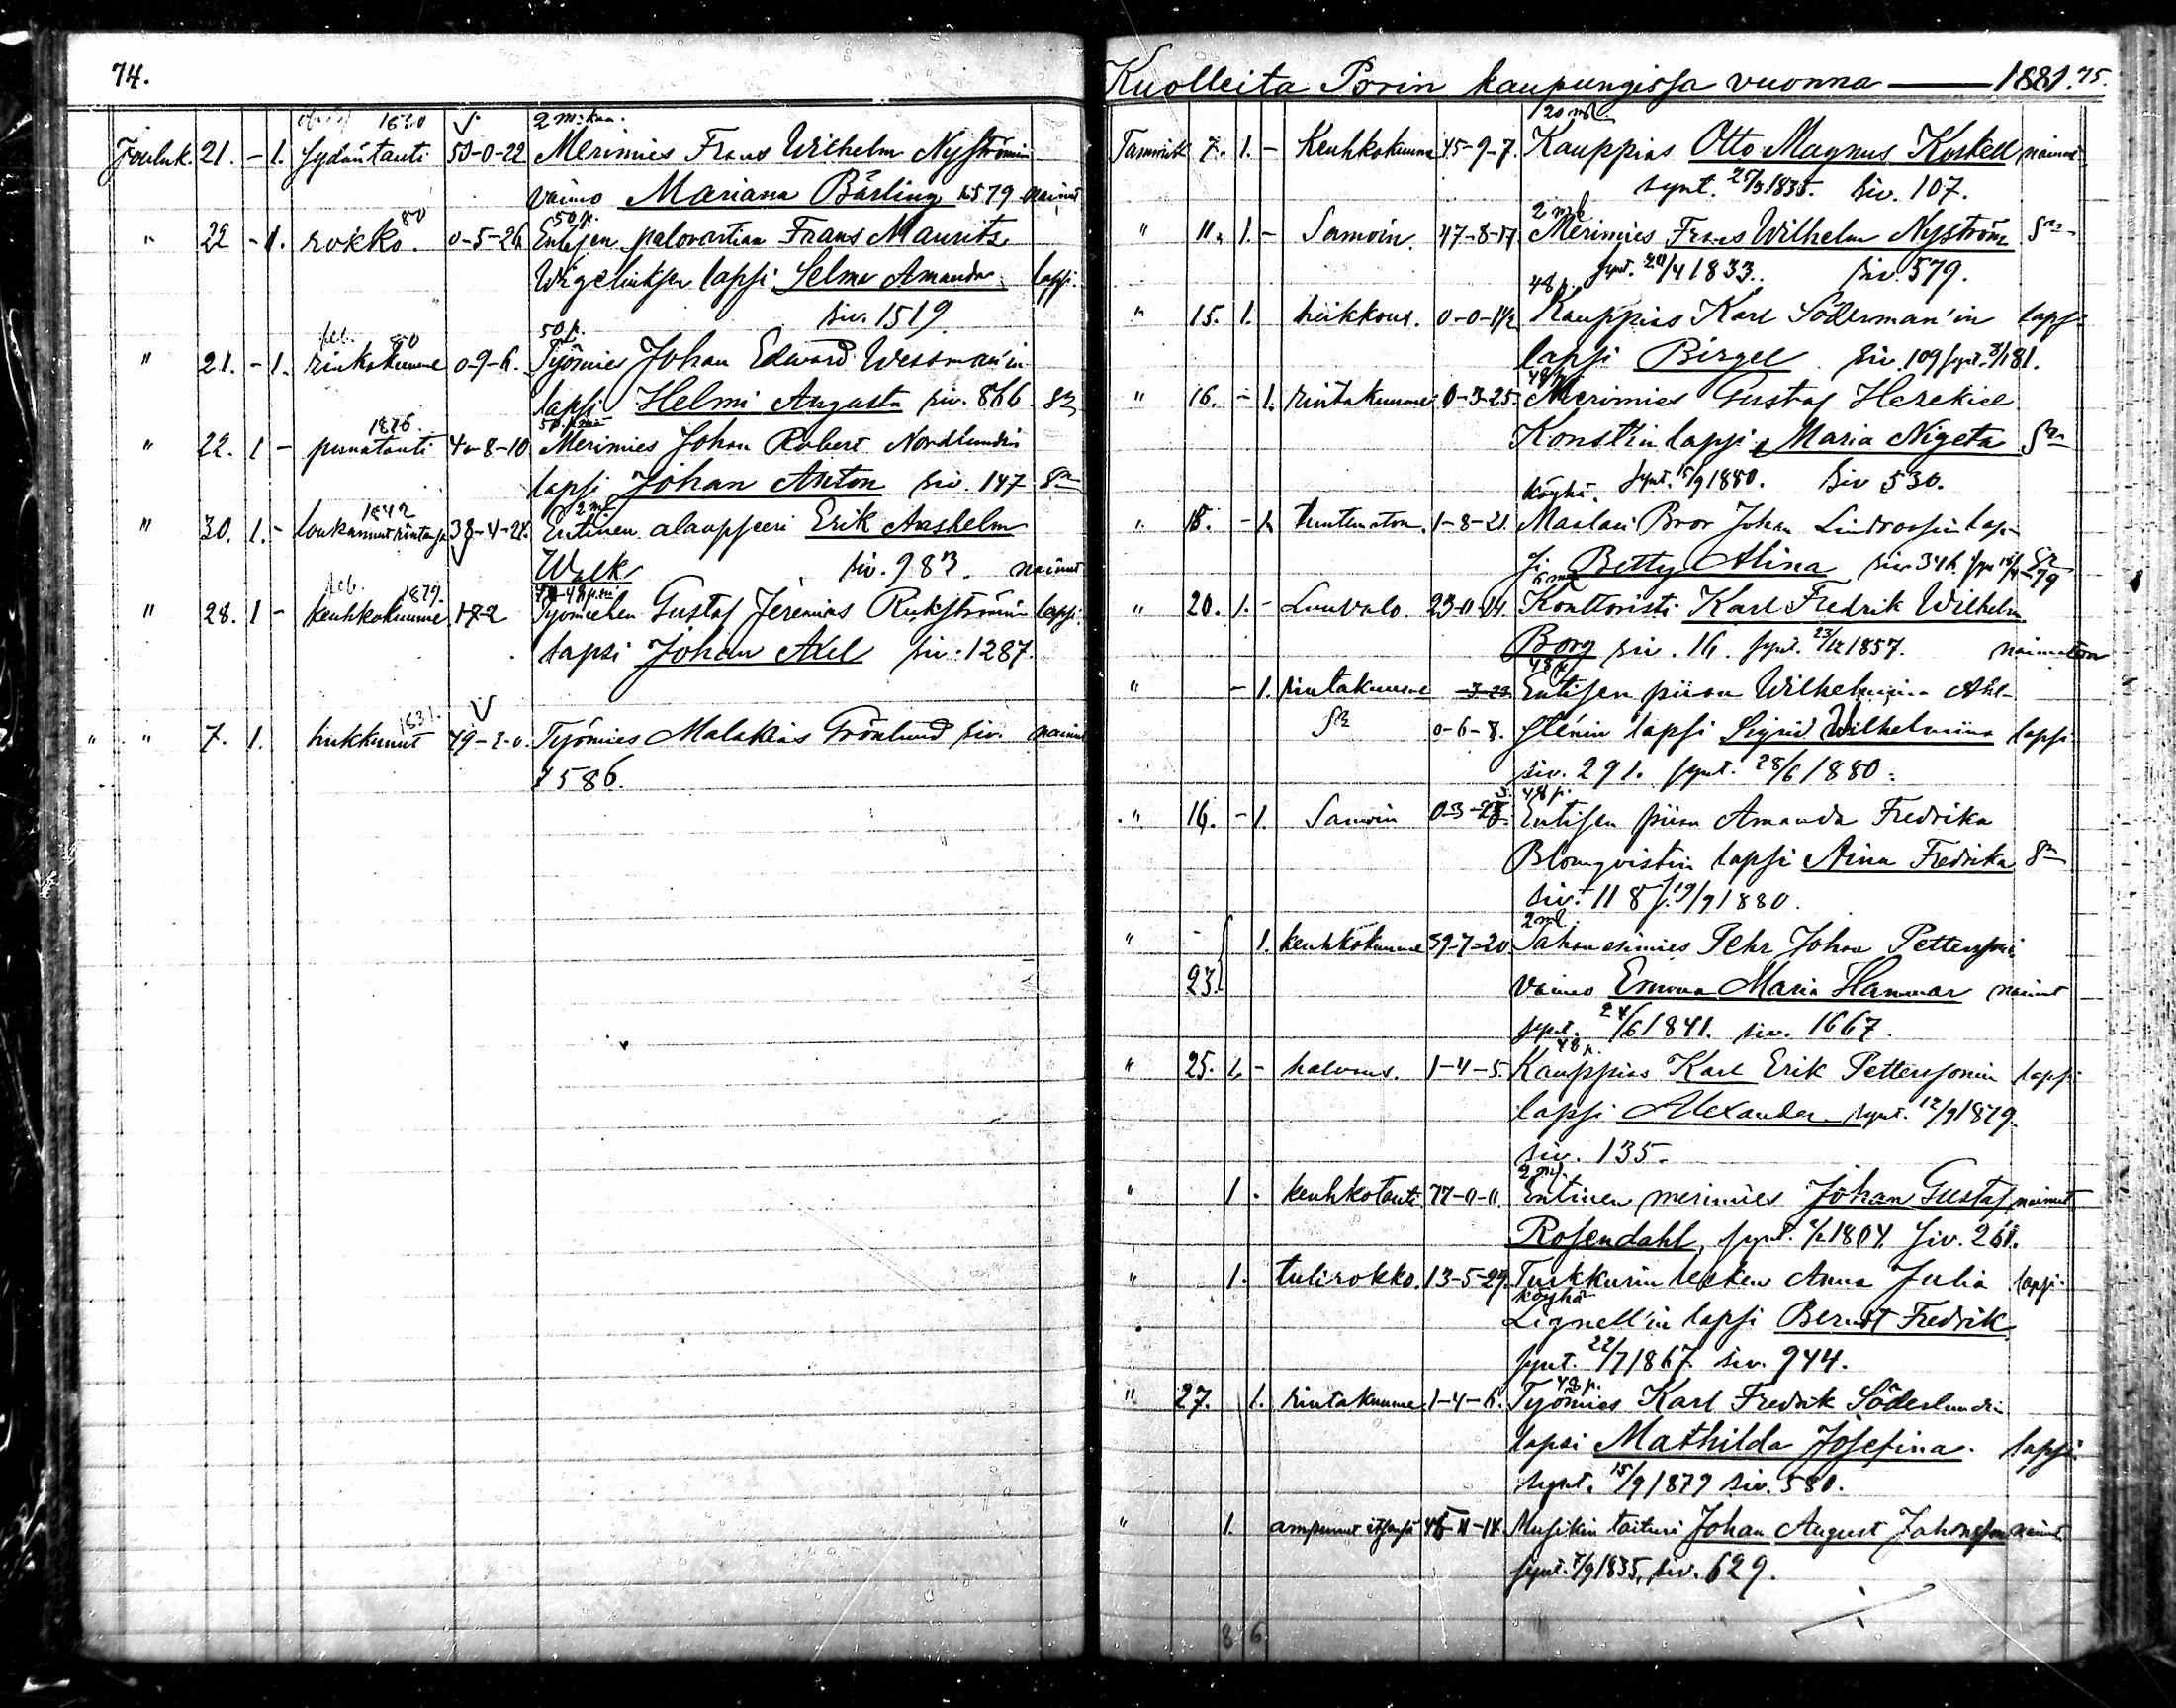 74.
Jouluk. 21. - 1. Sydäntauti 1830 50-0-22 2 m: kaa. Merimies Frans Wilhelm Nyströmin
vaimo Mariana Bärling s. 579 nainut
" 22 - 1. rokko. 80 0-5-26 50 p. Entisen palovartian Frans Maurits
Wigeliuksen lapsi Selma Amanda lapsi.
siv. 1519
" 21. - 1. rintakuume 80 0-9-6. 50 p. Työmies Johan Edward Wessman'in
lapsi Helmi Augusta siv. 866 Sn
" 22. 1 - punatauti 1876. 4-8-10 50 p. Merimies Johan Robert Nordlundin
lapsi Johan Anton siv. 147 Sn
" 30. 1. - loukannut rintansa 1842 38-4-24. 2 m. Entinen alaupseeri Erik Anshelm
Walk siv. 983. nainut
" 28. 1 - keuhkokuume 1879. 1-8-2 48 p. Työmiehen Gustaf Jeremias Rukströmin lapsi.
lapsi Johan Axel siv. 1287.
" " 7. 1. hukkunut 1831. 49-3-0. Työmies Malakias Grönlund siv. nainut
1586.
Kuolleita Porin kaupungissa vuonna 1881. 75.
Tammik 7. 1. - Keuhkokuume 45-9-7. 120 mk Kauppias Otto Magnus Koskell nainut
synt. 25/3 1835. siv. 107.
" 11. 1. - Samoin. 47-8-17 2 mk Merimies Frans Wilhelm Nyström Sn
synt. 24/4 1833. siv. 579.
" 15. 1. heikkous. 0-0-11/2 48 p. Kauppias Karl Söderman'in lapsi
lapsi Birgel siv. 109 synt. /1 81.
" 16. - 1. rintakuume 0-3-25. 48 p. Merimies Gustaf Hezekiel
Konstin lapsi Maria Nigeta Sn
synt. 15/9 1880. siv 530.
" 18. - 1. tuntematon. 1-8-21. köyhä. Maalari Bror Johan Lindroosin lap-
si Betty Alina siv. 346. Sn
" 20. 1. - Luuvalo. 23-0-24. 6 mk Konttoristi Karl Fredrik Wilhelm
Borg siv. 16. synt. 23/12 1857. naimaton
" - 1. rintakuume 48 p. Entisen piian Wilhelmiina Ahl-
Sn 0-6-8. sténin lapsi Sigrid Wilhelmiina lapsi.
siv. 291. synt. 28/6 1880.
" 16. - 1. Samoin 0-3-25. 48 p. Entisen piian Amanda Fredrika
Blomqvistin lapsi Aina Fredrika Sn
siv. 118 s. 19/9 1880.
" - 1. keuhkokuume 39-7-20. 2 mk Sahanesimies Pehr Johan Pettersson
23. vaimo Emma Maria Hammar nainut
synt. 24/6 1841. siv. 1667.
" 25. 1. - halvaus. 1-4-5. 48 p. Kauppias Karl Erik Petterssonin lapsi
lapsi Alexander synt. 12/9 1879.
siv. 135.
" 1 - keuhkotauti 77-0-0. 2 mk. Entinen merimies Johan Gustaf nainut
Rosendahl, synt. 1804. siv. 261.
" 1. tulirokko. 13-5-29. Turkkurin lesken Anna Julia lapsi.
köyhä
Lignell'in lapsi Berndt Fredrik
synt. 22/7 1867. siv. 944.
" 27. 1. rintakuume 1-4-6. 48 p. Työmies Karl Fredrik Söderlundin
lapsi Mathilda Josefina. lapsi.
synt. 15/9 1879 siv. 580.
" 1. ampunut itsensä Musikin taituri Johan August Jahansson nainut
synt. 7/9 1835, siv. 629.
8 6